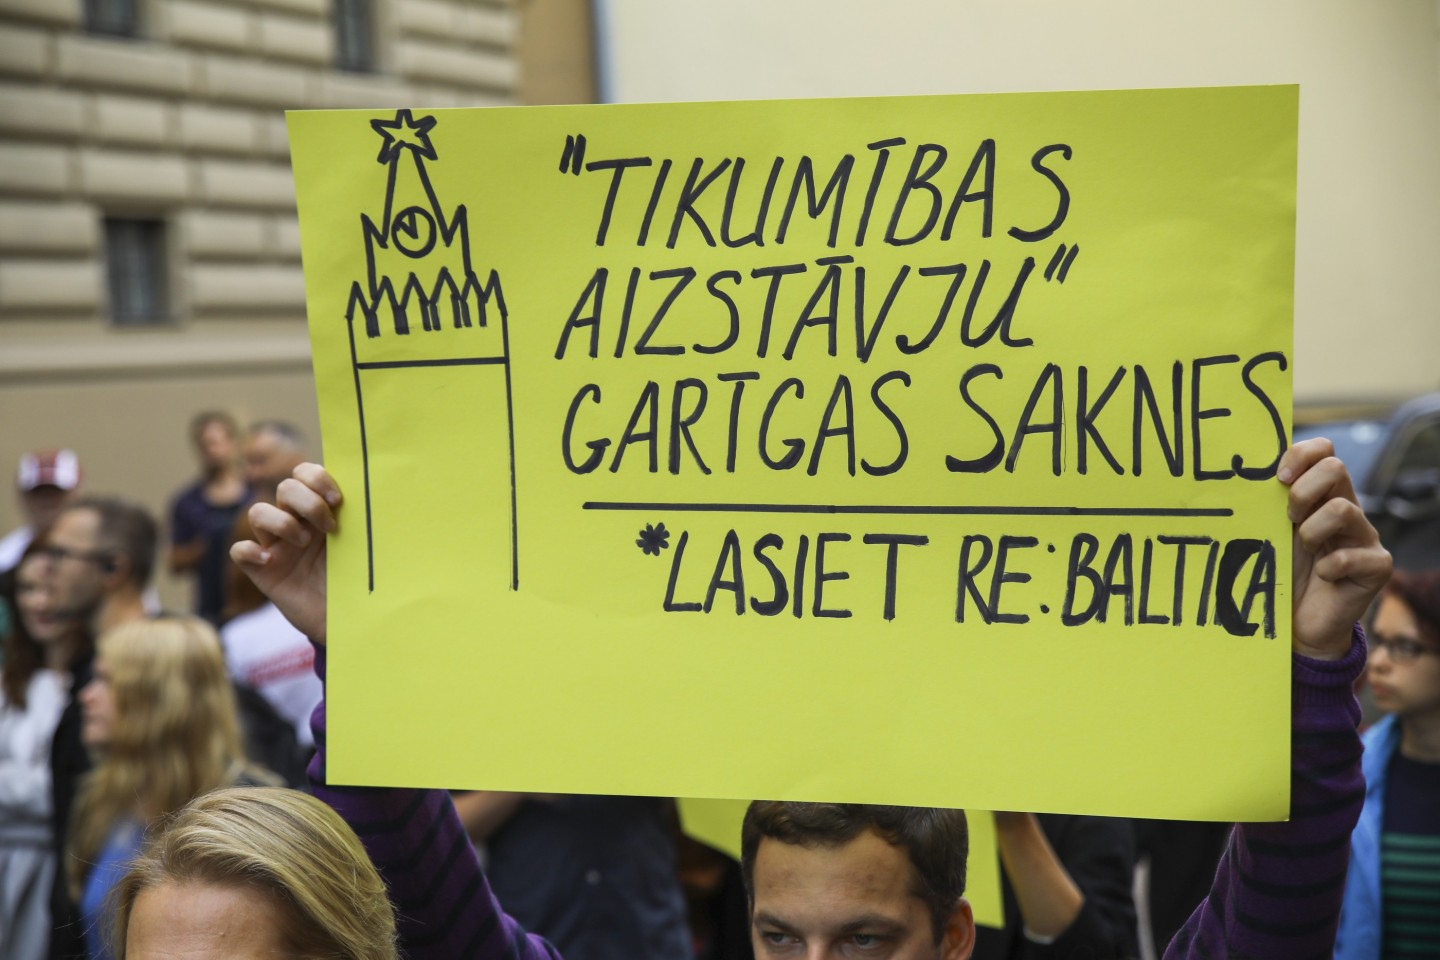 "TIKUMĪBAS
AIZSTĀVJU"
GARĪGAS SAKNES
*LASIET RE:BALTICA